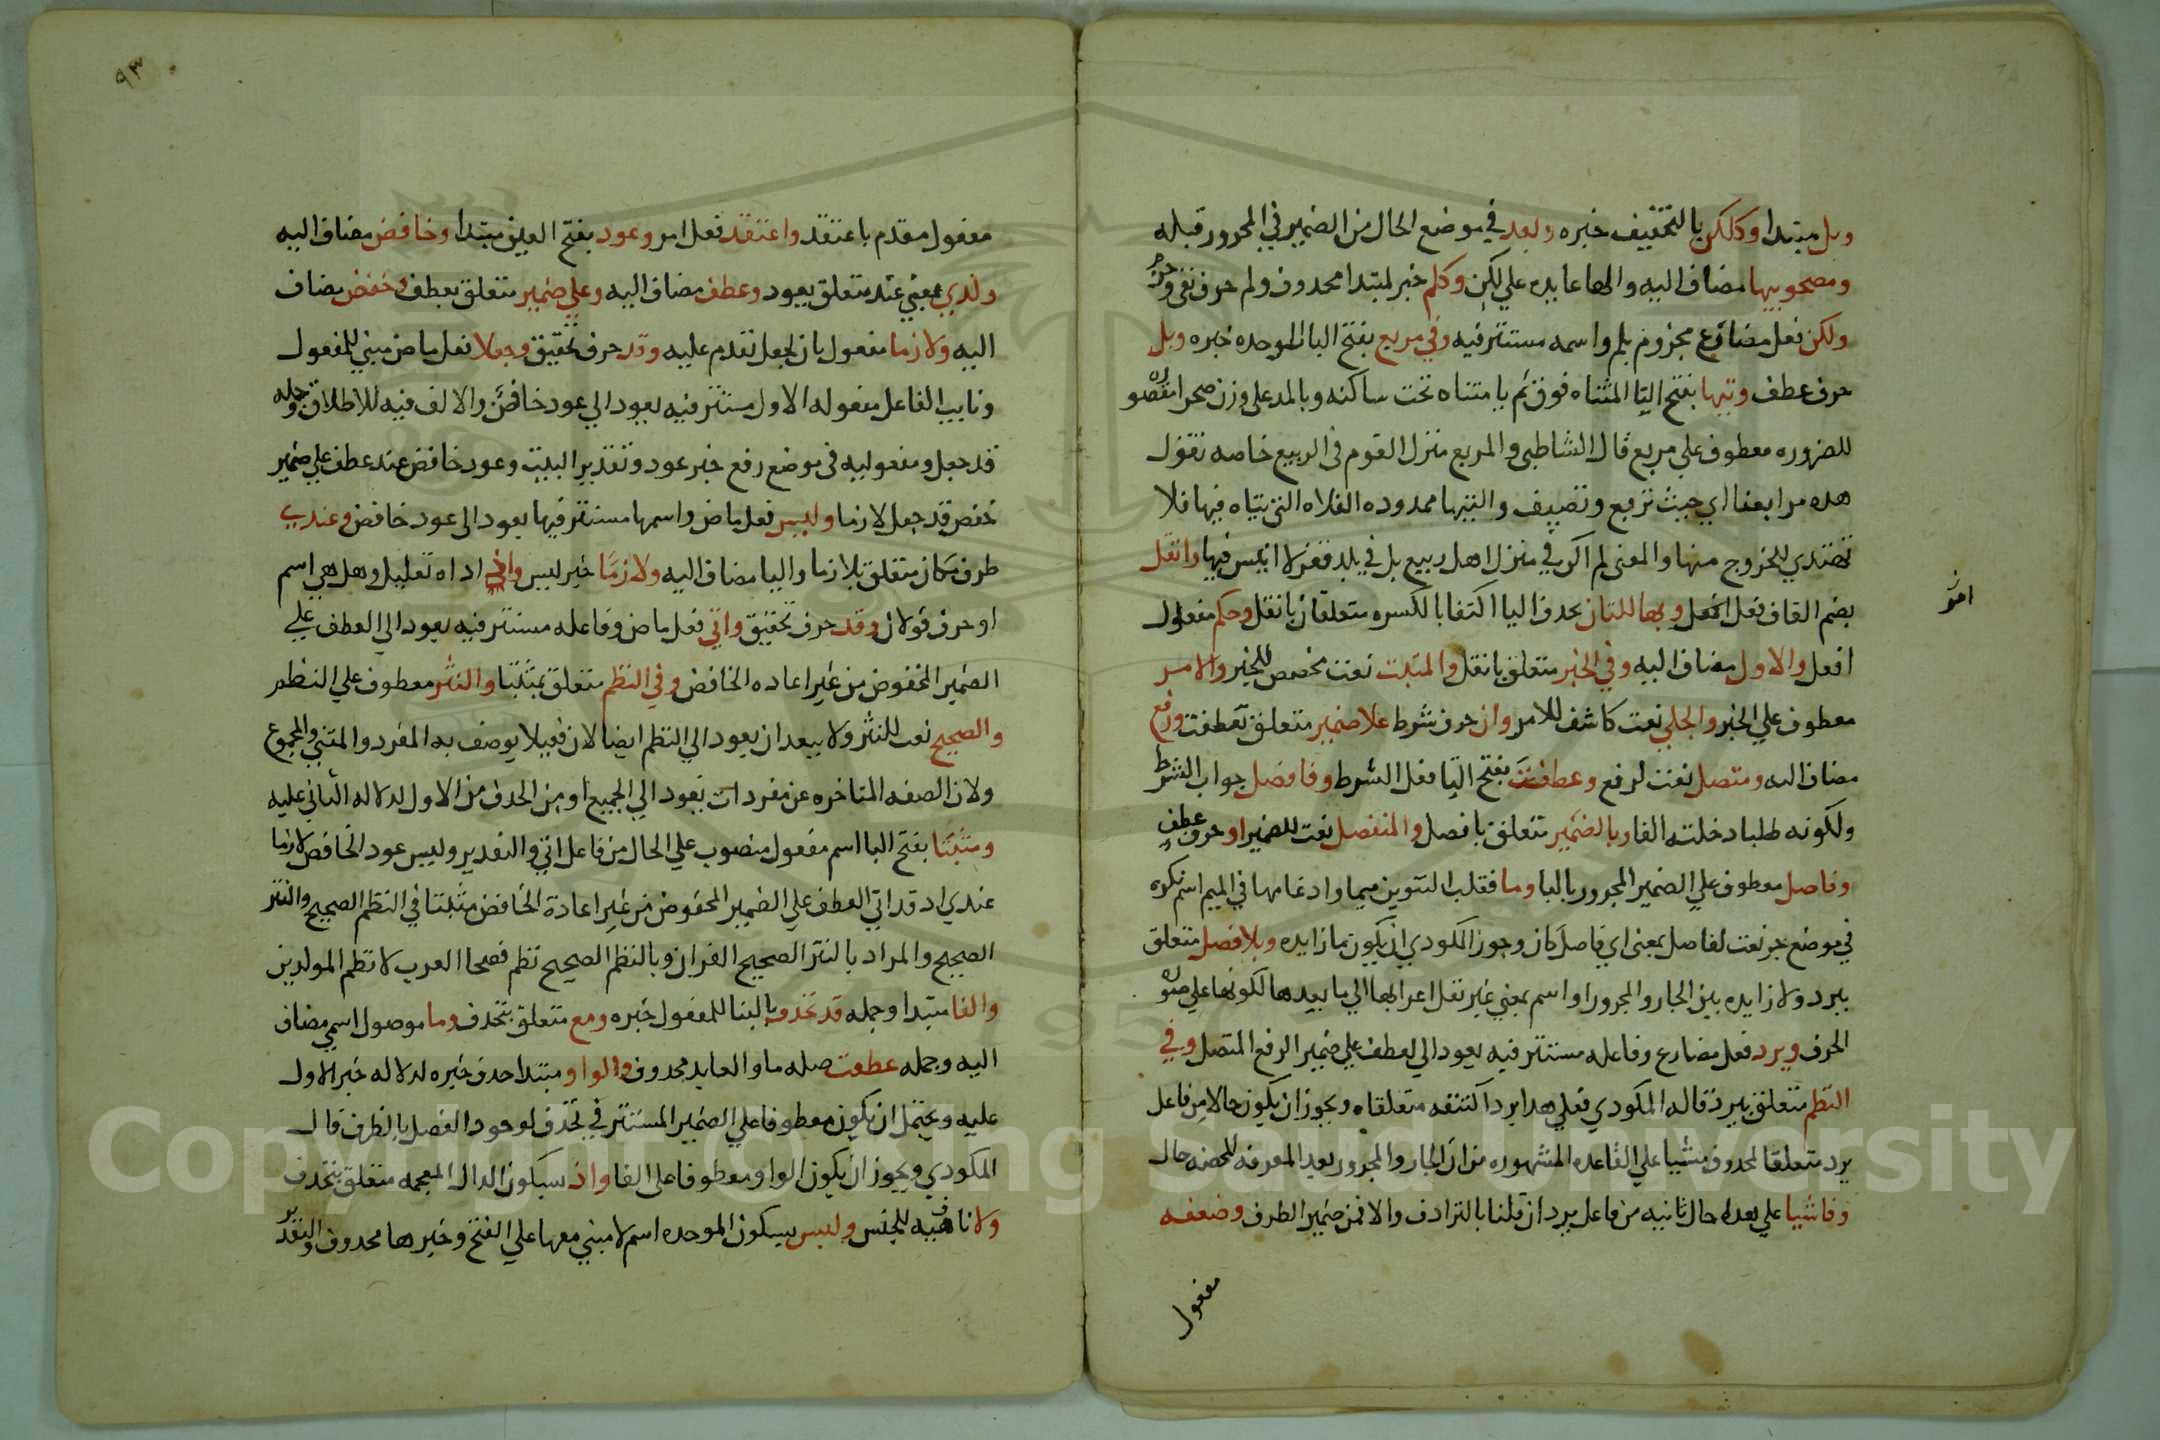 وبل مبتدا وكلكن بالتخفيف خبره وبعد في موضع الحال من الضمير في المجرور قبله
ومصحوبيها مضاف اليه والها عايده علي لكن وكلم خبر لمبتدا محدوف ولم حرف نفي وجزم
ولكن فعل مضارع مجزوم بلم واسمه مستتر فيه وفي مربع بفتح البا الموحده خبره وبل
حرف عطف وتيها بفتح التا المثناه فوق ثم يا مثناه تحت ساكنه وبالمد علي وزن صحرا مقصور
للضروره معطوف علي مربع قال الشاطبي والمربع منزل القوم في الربيع خاصه تقول
هده مرابعنا اي حيث نربع ونصيف والتيها ممدوده الفلاه التي يتاه فيها فلا
تهتدي للخروج منها والمعني لم اكن في منزل اهل ربيع بل في بلد قفر لا انيس فيها وانقل
بضم القاف فعل امر وبها للثان بحدف اليا اكتفا بالكسره متعلقان بانقل وحكم مفعول
انقل والاول مضاف اليه وفي الخبر متعلق بانقل والمثبت نعت مخصص للخبر والامر
معطوف علي الخبر والجلي نعت كاشف للامر وان حرف شرط علا ضمير متعلق بعطفت ورفع
مضاف اليه ومتصل نعت لرفع وعطفت بفتح التا فعل الشرط وفافصل جواب الشرط
ولكونه طلبا دخلته الفا وبالضمير متعلق بافصل والمنفصل نعت للضمير او حرف عطف
وفاصل معطوف علي الضمير المجرور بالبا وما فقلب التنوين ميما وادغامها في الميم اسم نكره
في موضع جر نعت لفاصل بمعني اي فاصل كان وجوز المكودي ان يكون ما زايده وبلا فصل متعلق
بيرد ولا زايده بين الجار والمجرور او اسم بمعني غير نقل اعرابها الي ما بعدها لكونها علي صوره
الحرف ويرد فعل مضارع وفاعله مستتر فيه يعود الي لعطف علي ضمير الرفع المتصل وفي
النظم متعلق بيرد قاله المكودي فعلي هدا يرد اكتنفه متعلقاه ويجوز ان يكون حالا من فاعل
يرد متعلقا لمحدوف مشيا علي القاعده المشهوره من ان الجار والمجرور بعد المعرفه للمحضه حال
وفاشيا علي بعداه حال ثانيه من فاعل يرد ان قلنا بالترادف والا فمن ضمير الظرف وضعفه
مفعول
٩٣
مفعول مقدم باعتقد واعتقد فعل امر وعود بفتح العين مبتدا وخافض مضاف اليه
ولدي بمعني عند متعلق بعود وعطف مضاف اليه وعلي ضمير متعلق بعطف وخفض مضاف
اليه ولازما مفعول ثان لجعل تقدم عليه وقد حرف تحقيق وجعلا فعل ماض مبني للمفعول
ونايب الفاعل مفعوله الاول مستتر فيه يعود الي عود خافض والالف فيه للاطلاق وجمله
قد جعل ومفعوليه في موضع رفع خبر عود وتقدير البيت وعود خافض عند عطف علي ضمير
خفض قد جعل لازما وليس فعل ماض واسمها مستتر فيها يعود الي عود خافض وعندي
ظرف مكان متعلق بلازما واليا مضاف اليه ولازما خبر ليس واذ اداه تعليل وهل هي اسم
او حرف قولان وقد حرف تحقيق واتي فعل ماض وفاعله مستتر فيه يعود الي العطف علي
الضمير المخفوض من غير اعاده الخافض وفي النظم متعلق بمثبتا والنثر معطوف علي النظم
والصحيح نعت للنثر ولا يبعد ان يعود الي النظم ايضا لان فعيلا يوصف به المفرد والمثني والمجموع
ولان الصفه المتاخره عن مفردات تعود الي الجميع او من الحدف من الاول لدلاله الثاني عليه
ومثبتا بفتح البا اسم مفعول منصوب علي الحال من فاعل اتي والتقدير وليس عود الخافض لازما
عندي اد قد اتي العطف علي الضمير المخفوض من غير اعادة الخافض مثبتا في النظم الصحيح والنثر
الصحيح والمراد بالنثر الصحيح القران وبالنظم الصحيح نظم فصحا العرب لا نظم المولدين
والفا مبتدا وجمله قد تحذف بالبنا للمفعول خبره ومع متعلق بتحدف وما موصول اسمي مضاف
اليه وجمله عطفت صله ما والعايد محدوف والواو مبتدا حدف خبره لدلاله خبر الاول
عليه ويحتمل ان يكون معطوفا علي الضمير المستتر في تحدف لوجود الفصل بالظرف قال
المكودي ويجوز ان يكون الواو معطوفا علي الفا واذ بسكون الدال المعجمه متعلق بتحدف
ولا نافيه للجنس ولبس بسكون الموحده اسم لا مبني معها علي الفتح وخبرها محدوف والتقدير
Copyright © King Saud University